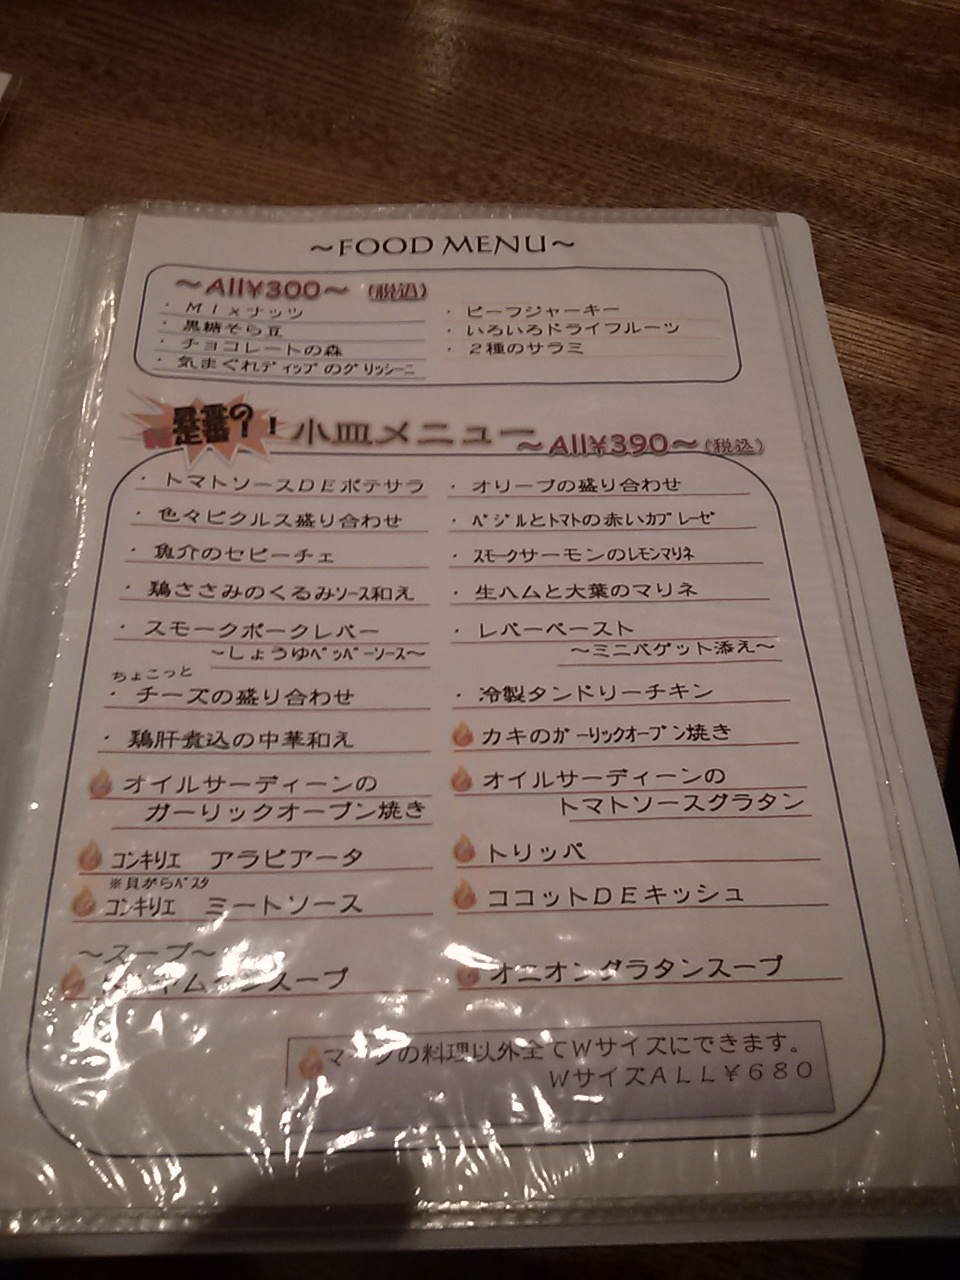 ～FOOD MENU～
～All¥300～ (税込)
・MIxナッツ
・黒糖そら豆
・チョコレートの森
・気まぐれディップのグリッシーニ
・ビーフジャーキー
・いろいろドライフルーツ
・2種のサラミ
小皿メニュー
～All¥390～(税込)
・トマトソースDEポテサラ
・色々ピクルス盛り合わせ
・魚介のセビーチェ
・鶏ささみのくるみソース和え
・スモークポークレバー
～しょうゆペッパーソース～
ちょこっと
・チーズの盛り合わせ
・鶏肝煮込の中華和え
オイルサーディーンの
ガーリックオーブン焼き
コンキリエ アラビアータ
※貝がらパスタ
コンキリエ ミートソース
～スープ～
スープ
・オリーブの盛り合わせ
・バジルとトマトの赤いカプレーゼ
・スモークサーモンのレモンマリネ
・生ハムと大葉のマリネ
・レバーペースト
～ミニバゲット添え～
・冷製タンドリーチキン
カキのガーリックオーブン焼き
オイルサーディーンの
トマトソースグラタン
トリッパ
ココットDEキッシュ
オニオングラタンスープ
マークの料理以外全てWサイズにできます。
WサイズALL¥680